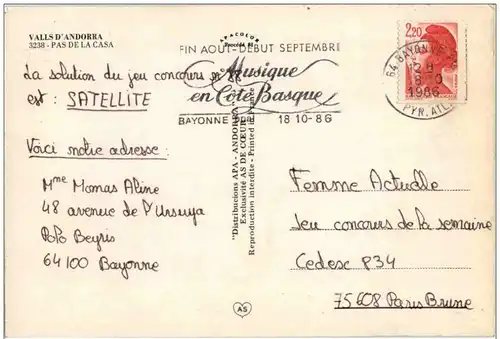 VALLS D'ANDORRA
3238 - PAS DE LA CASA
La solution du jeu concours en 88
est : SATELLITE
Voici notre adresse :
Mme Mamas Aline
48 avenue de l'Ursuya
PoPo Beyris
64100 Bayonne
APACOLOR
FIN AOUT-DEBUT SEPTEMBRE
Musique
en Côte Basque
BAYONNE Ppal 18 10-86
"Distribucions APA - ANDORRA"
Exclusividad AS DE CŒUR
Reproduction interdite - Printed
2,20
64 BAYONNE
18-10
1986
PYR. ATL.
Femme Actuelle
Jeu concours de la semaine
Cedesc P34
75608 Paris Brune
AS